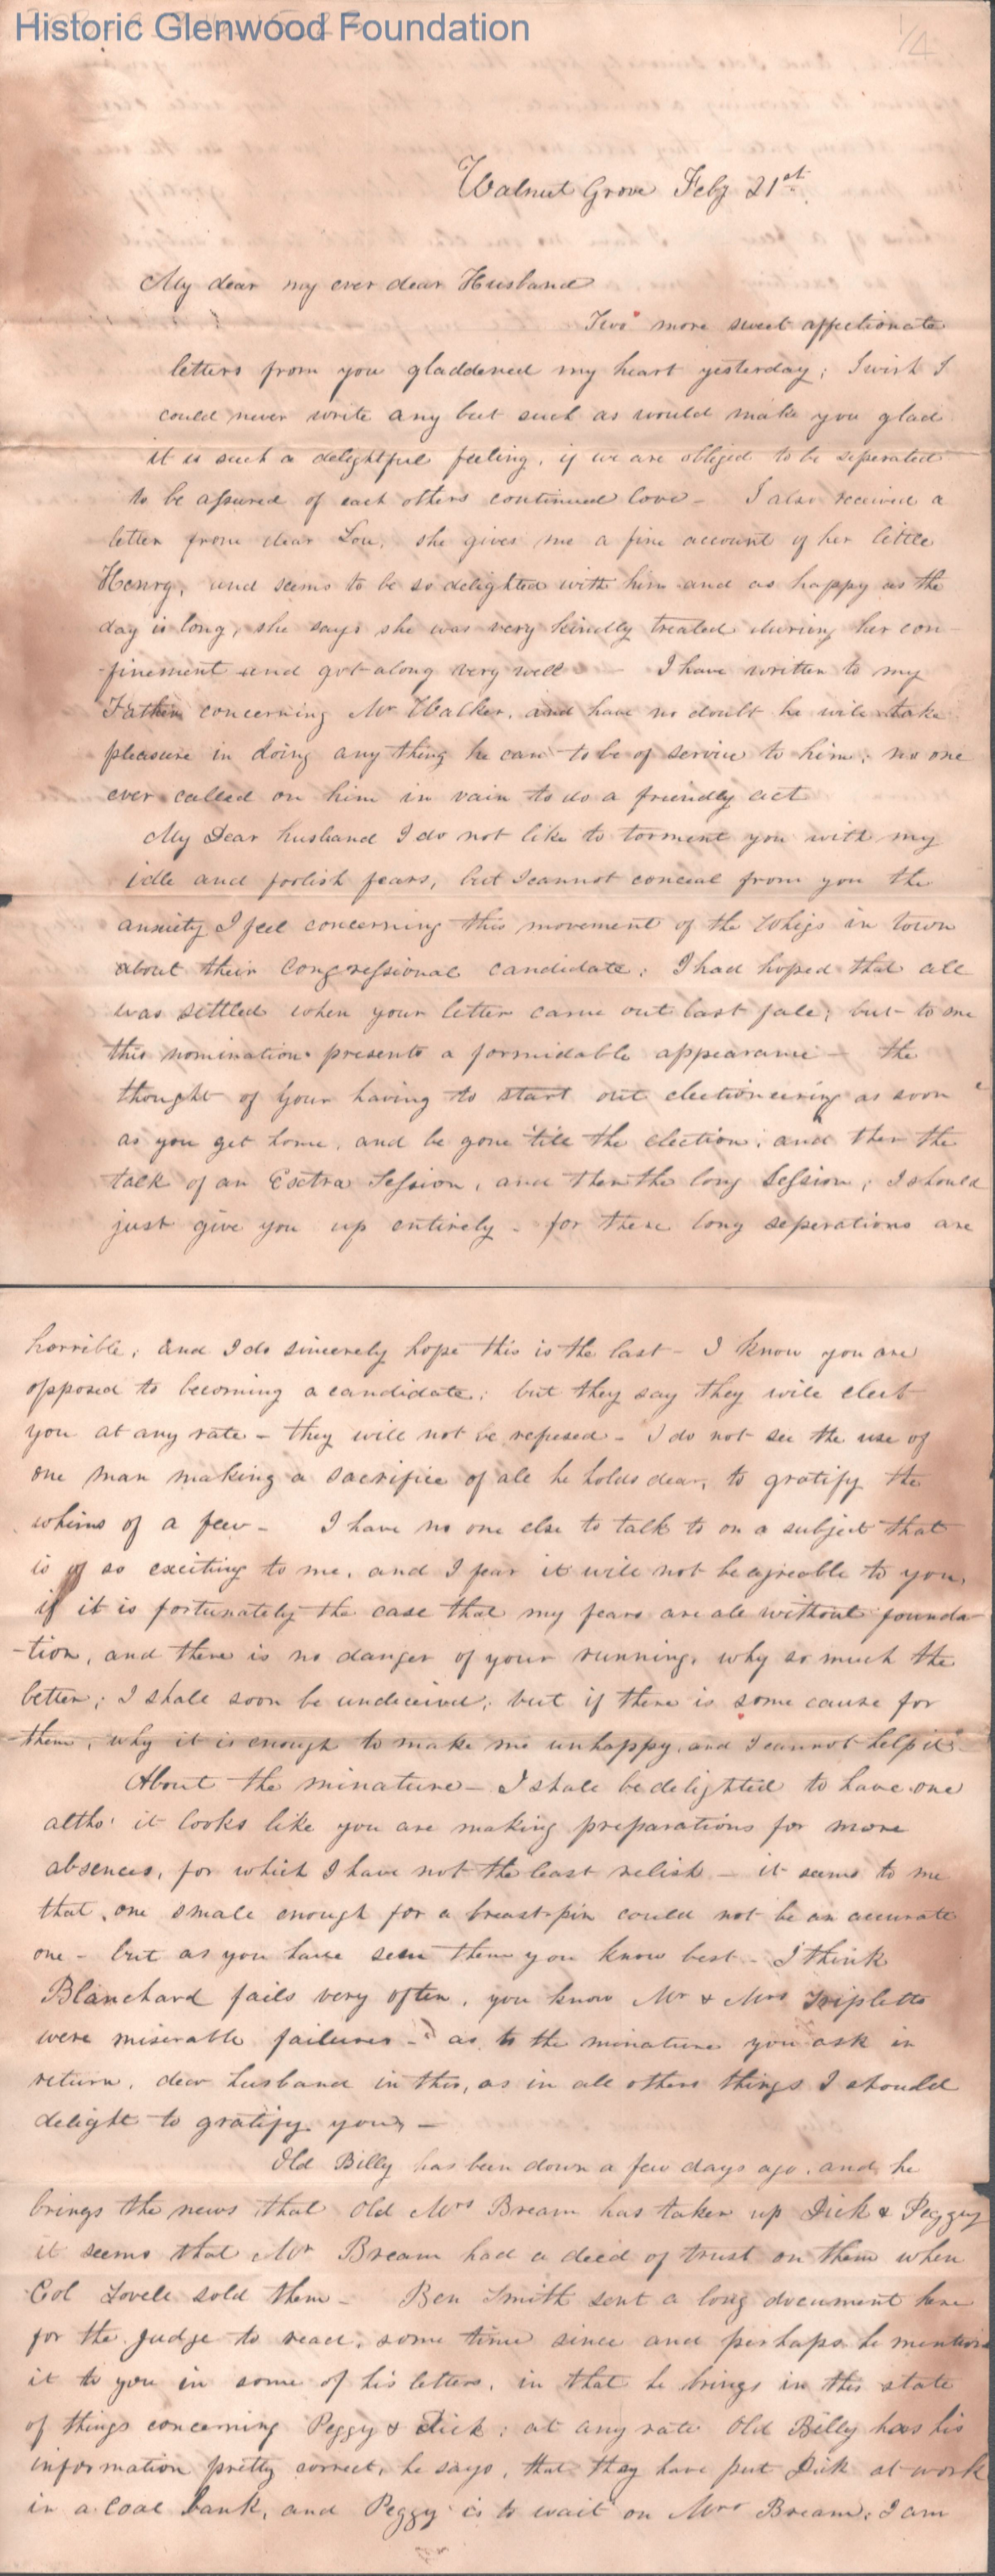 Historic Glenwood Foundation
1/4
Walnut Grove Feby 21st
My dear my ever dear Husband
Two more sweet affectionate
letters from you gladdened my heart yesterday; I wish I
could never write any but such as would make you glad
it is such a delightful feeling, if we are obliged to be seperated
to be assured of each others continued love - I also received a
letter from dear Lou, she gives me a fine account of her little
Henry, and seems to be so delighted with him and as happy as the
day is long, she says she was very kindly treated during her con
finement and got along very well - I have written to my
Father concerning Mr Walker, and have no doubt he will take
pleasure in doing any thing he can to be of service to him; no one
ever called on him in vain to do a friendly act
My Dear husband I do not like to torment you with my
idle and foolish fears, but I cannot conceal from you the
anxiety I feel concerning this movement of the Whigs in town
about their Congressional candidate; I had hoped that all
was settled when your letter came out last fall; but to me
this nomination presents a formidable appearance - the
thought of your having to start out electioneering as soon
as you get home, and be gone 'till the election; and then the
talk of an Exctra Session, and then the long Session; I should
just give you up entirely - for these long seperations are
horrible; and I do sincerely hope this is the last - I know you are
opposed to becoming a candidate; but they say they will elect
you at any rate - they will not be refused - I do not see the use of
one man making a sacrifice of all he holds dear, to gratify the
whims of a few - I have no one else to talk to on a subject that
is so exciting to me, and I fear it will not be agreable to you,
if it is fortunately the case that my fears are all without founda
-tion, and there is no danger of your running, why so much the
better; I shall soon be undeceived; but if there is some cause for
them, why it is enough to make me unhappy, and I cannot help it -
About the minature - I shall be delighted to have one
altho' it looks like you are making preparations for more
absences, for which I have not the least relish - it seems to me
that, one small enough for a breast-pin could not be an accurate
one - but as you have seen them you know best - I think
Blanchard fails very often, you know Mr & Mrs Tripletts
were miserable failures - as to the minature you ask in
return, dear husband in this, as in all others things I should
delight to gratify you, -
Old Billy has been down a few days ago, and he
brings the news that Old Mrs Bream has taken up Dick & Peggy
it seems that Mr Bream had a deed of trust on them when
Col Lovell sold them - Ben Smith sent a long document here
for the Judge to read, some time since and perhaps he mentions
it to you in some of his letters, in that he brings in this state
of things concerning Peggy & Dick; at any rate Old Billy has his
information pretty correct, he says, that they have put Dick at work
in a Coal bank, and Peggy is to wait on Mrs Bream; I am